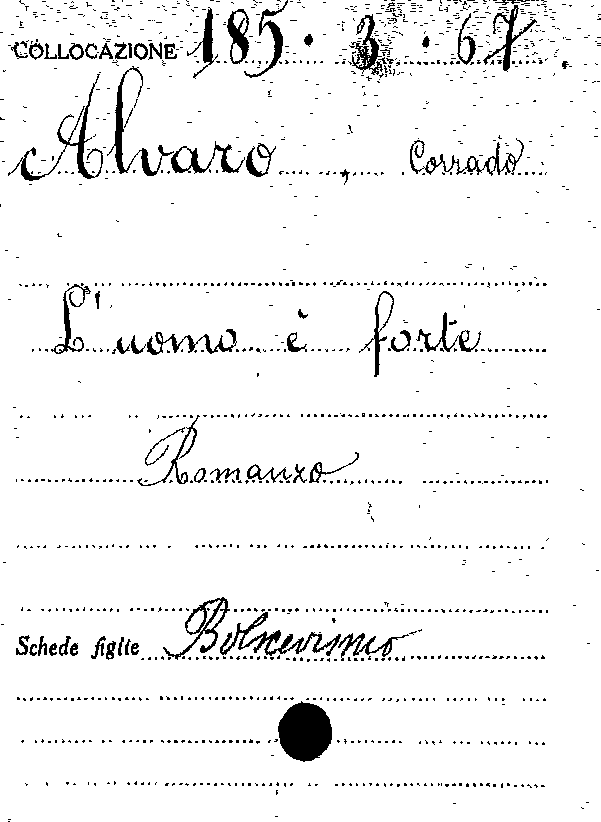 COLLOCAZIONE 185.3.67.
Alvaro, Corrado
L'uomo è forte
Romanzo
Schede figlie Bolscevismo